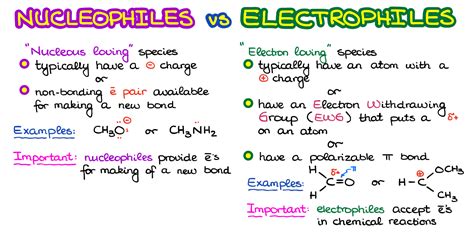 NUCLEOPHILES vs ELECTROPHILES
"Nucleous loving" species
typically have a ⊖ charge
or
non-bonding ē pair available
for making a new bond
Examples: CH₃O⊖ or CH₃NH₂
Important: nucleophiles provide ē's
for making of a new bond
"Electron loving" species
typically have an atom with a
⊕ charge
or
have an Electron Withdrawing
Group (EWG) that puts a δ+
on an atom
or
have a polarizable π bond
Examples: H H C=O δ+ π or H-C ⊕ OCH₃ CH₃
Important: electrophiles accept ē's
in chemical reactions